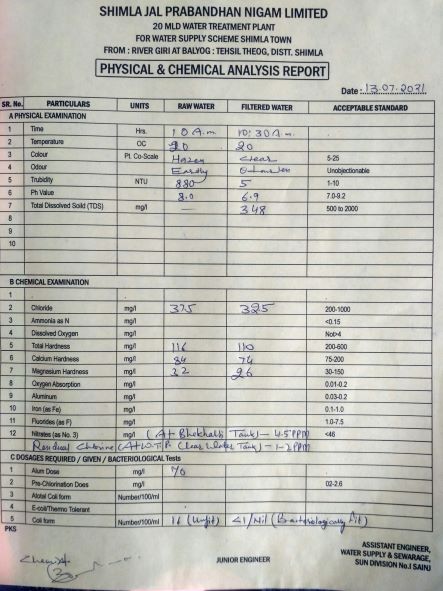 SHIMLA JAL PRABANDHAN NIGAM LIMITED
20 MLD WATER TREATMENT PLANT
FOR WATER SUPPLY SCHEME SHIMLA TOWN
FROM : RIVER GIRI AT BALYOG : TEHSIL THEOG, DISTT. SHIMLA
PHYSICAL & CHEMICAL ANALYSIS REPORT
Date : 13.07.2021
SR. No. PARTICULARS UNITS RAW WATER FILTERED WATER ACCEPTABLE STANDARD
A PHYSICAL EXAMINATION
1 Time Hrs. 10 A.m 10:30 A.m.
2 Temperature OC 20 20
3 Colour Pt. Co-Scale Hazen clear 5-25
4 Odour Earthy Unobjectionable
5 Trubidity NTU 880 5 1-10
6 Ph Value 8.0 6.9 7.0-9.2
7 Total Dissolved Soild (TDS) mg/l — 348 500 to 2000
8
9
10
B CHEMICAL EXAMINATION
1
2 Chloride mg/l 375 325 200-1000
3 Ammonia as N mg/l <0.15
4 Dissolved Oxygen mg/l Not>4
5 Total Hardness mg/l 116 110 200-600
6 Calcium Hardness mg/l 84 74 75-200
7 Magnesium Hardness mg/l 32 26 30-150
8 Oxygen Absorption mg/l 0.01-0.2
9 Aluminum mg/l 0.03-0.2
10 Iron (as Fe) mg/l 0.1-1.0
11 Fluorides (as F) mg/l 1.0-7.5
12 Nitrates (as No. 3) mg/l (At Bhekhalti Tank) — 4.5 PPM <46
Residual Chlorine (At W.T.P. Clear Water Tank) — 1-2 PPM
C DOSAGES REQUIRED / GIVEN / BACTERIOLOGICAL Tests
1 Alum Dose mg/l
2 Pre-Chlorination Does mg/l 02-2.6
3 Alotal Coli form Number/100/ml
4 E-coli/Thermo Tolerant
5 Coli form Number/100/ml 16 (Unfit) <1/Nil (Bacteriologically fit)
PKS
Chemist
JUNIOR ENGINEER
ASSISTANT ENGINEER,
WATER SUPPLY & SEWARAGE,
SUN DIVISION No.I SAINJ